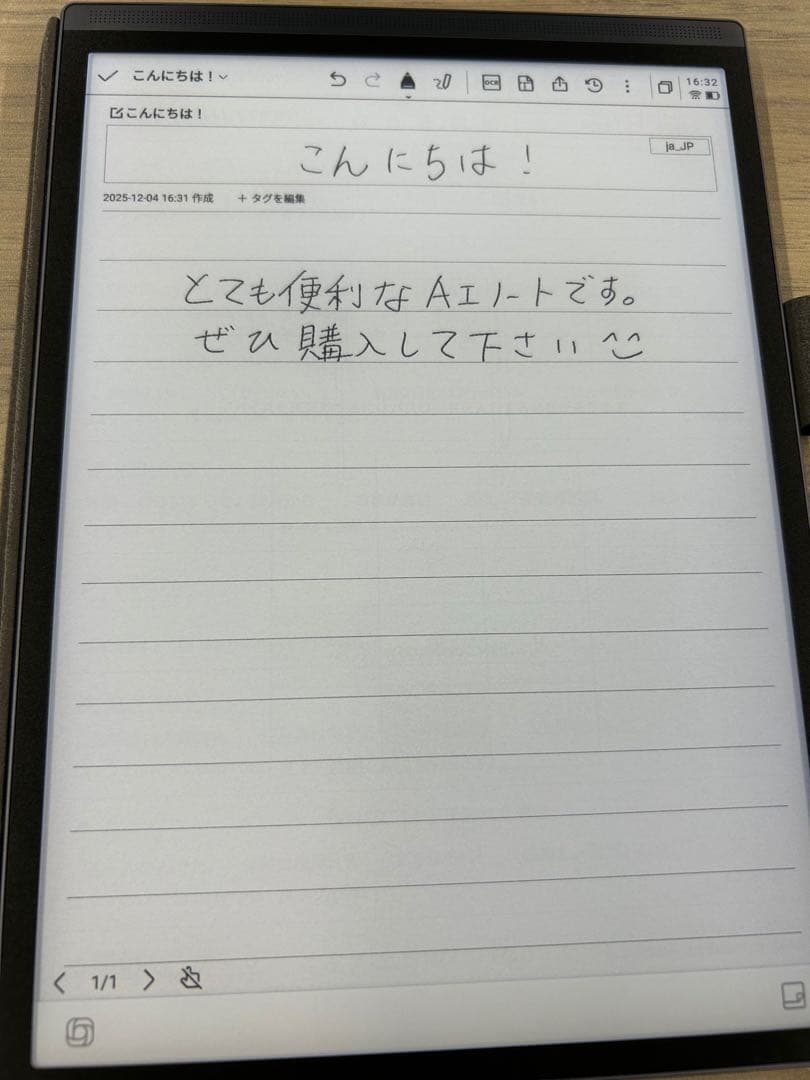 こんにちは！
16:32
こんにちは！
こんにちは！
ja_JP
2025-12-04 16:31 作成 + タグを編集
とても便利なAIノートです。
ぜひ購入して下さい^^
OCR
1/1